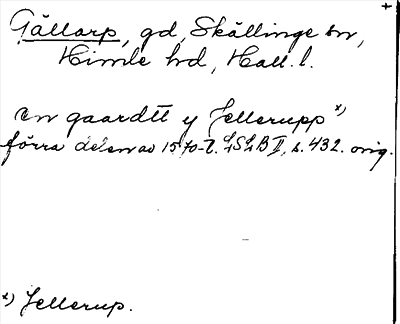 Gällarp, gd, Skällinge sn,
Himle hd, Hall. l.
en gaardtt y Jellerupp x)
förra delen av 1570-t. LSLB II, s. 432. orig.
x) Jellerup.